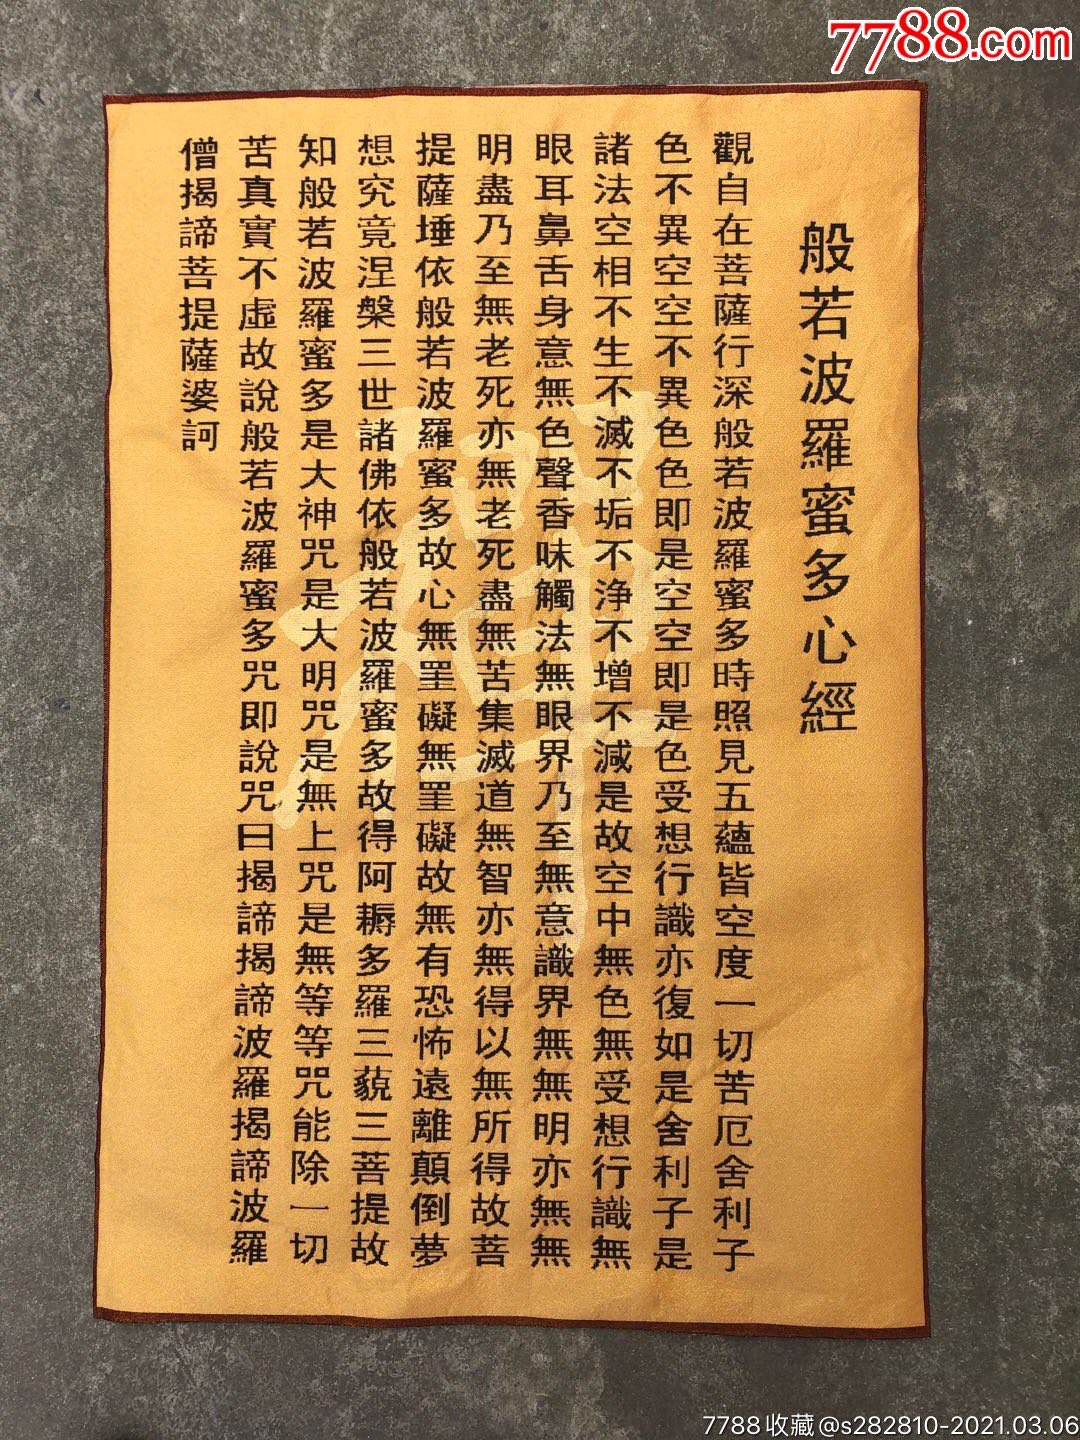 7788.com
般若波羅蜜多心經
觀自在菩薩行深般若波羅蜜多時照見五蘊皆空度一切苦厄舍利子
色不異空空不異色色即是空空即是色受想行識亦復如是舍利子是
諸法空相不生不滅不垢不净不增不減是故空中無色無受想行識無
眼耳鼻舌身意無色聲香味觸法無眼界乃至無意識界無無明亦無無
明盡乃至無老死亦無老死盡無苦集滅道無智亦無得以無所得故菩
提薩埵依般若波羅蜜多故心無罣礙無罣礙故無有恐怖遠離顛倒夢
想究竟涅槃三世諸佛依般若波羅蜜多故得阿耨多羅三藐三菩提故
知般若波羅蜜多是大神咒是大明咒是無上咒是無等等咒能除一切
苦真實不虛故說般若波羅蜜多咒即說咒曰揭諦揭諦波羅揭諦波羅
僧揭諦菩提薩婆訶
禪
7788收藏@s282810-2021.03.06